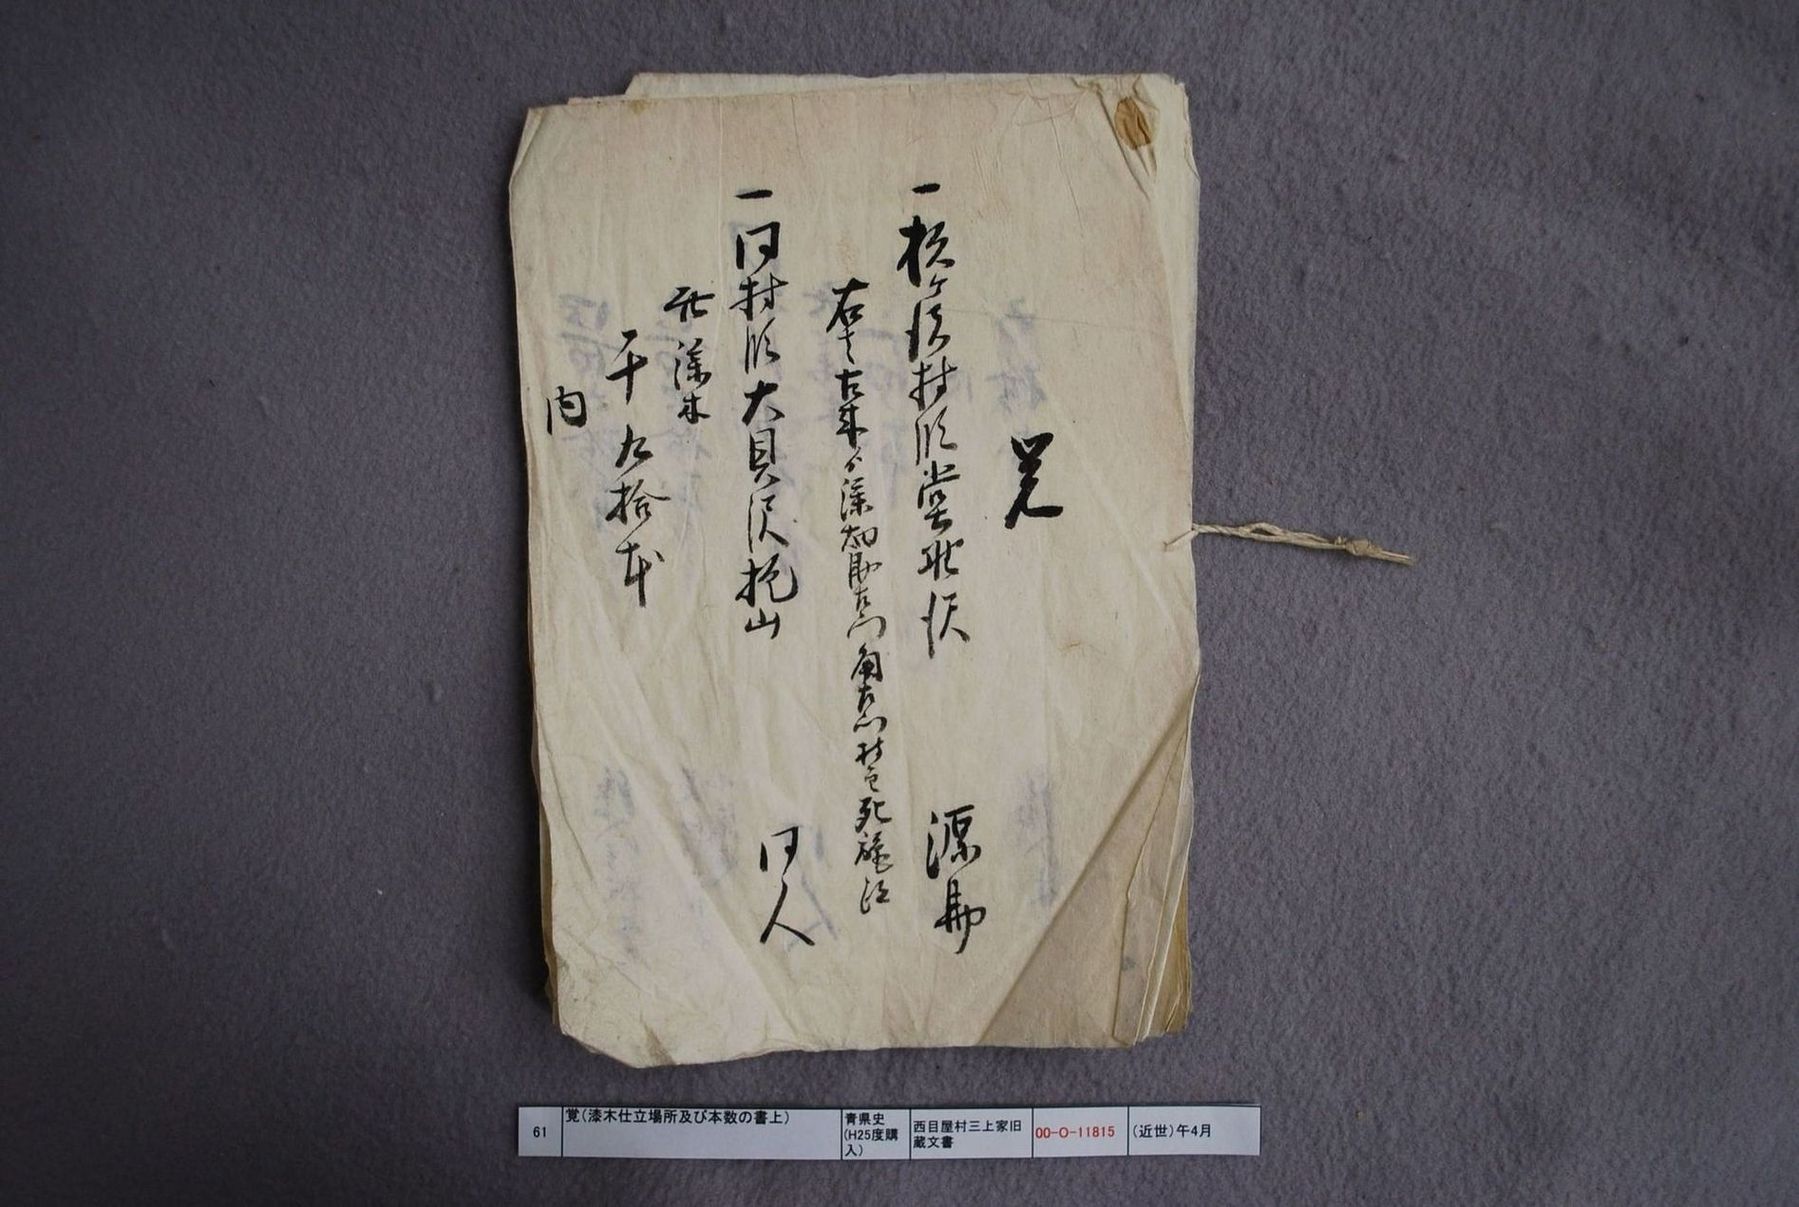 覚
一杉ヶ沢村領堂ノ沢 源助
右者古来ゟ漆 助左衛門 角左衛門
一同村領大貝沢抱山 同人
此漆木
千九拾本
内
61
覚(漆木仕立場所及び本数の書上)
青県史(H25度購入)
西目屋村三上家旧蔵文書
00-O-11815
(近世)午4月